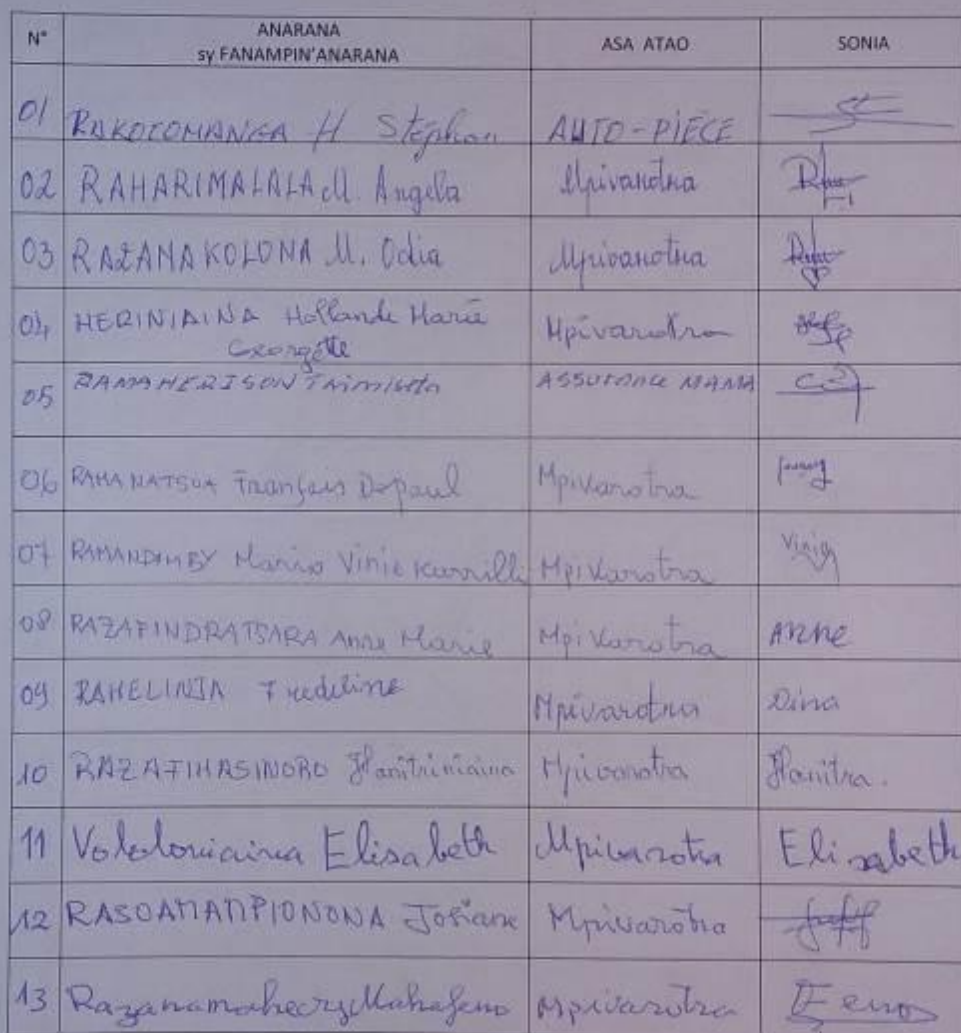 N° ANARANA sy FANAMPIN'ANARANA ASA ATAO SONIA
01 RAKOTOMANGA H Stéphan AUTO-PIÈCE
02 RAHARIMALALA M. Angela Mpivarotra
03 RAZANAKOLONA M. Odia Mpivarotra
04 HERINIAINA Hollande Marie Georgette Mpivarotra
05 RAMAHERISON ASSURANCE MAMA
06 RAMANATSOA François Depaul Mpivarotra
07 RAMANDIMBY Maria Vinie Mpivarotra Vinie
08 RAZAFINDRATSARA Anne Marie Mpivarotra Anne
09 RAHELINIA Fredeline Mpivarotra Dina
10 RAZAFIHASINORO Hanitriniaina Mpivarotra Hanitra.
11 Vololoniaina Elisabeth Mpivarotra Elisabeth
12 RASOAMAMPIONONA Josiane Mpivarotra
13 Razanamahery Mahafeno Mpivarotra Feno